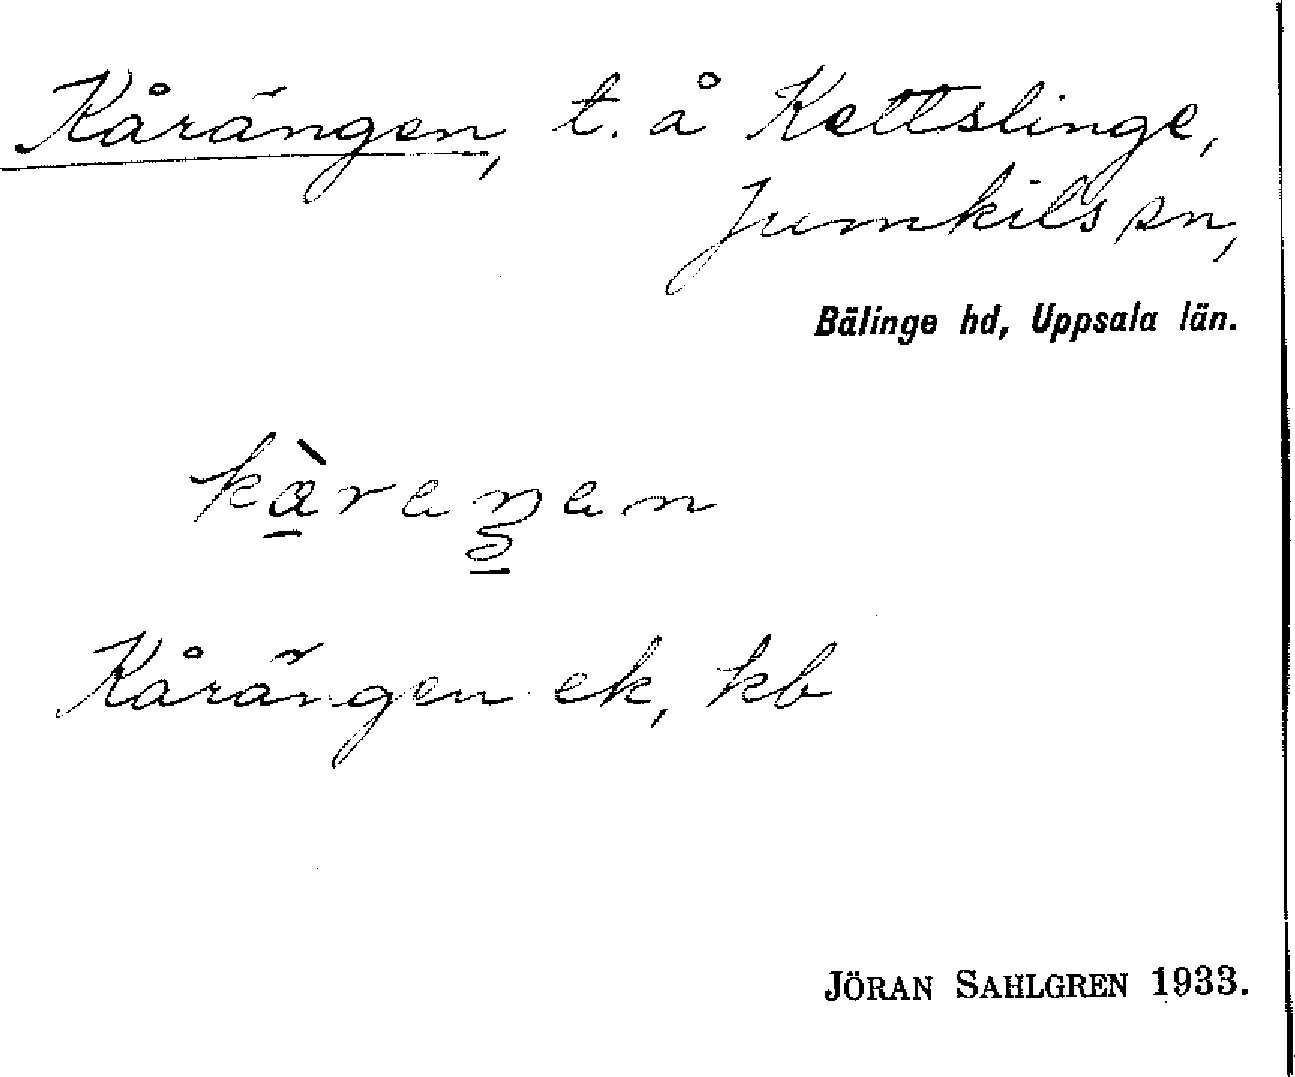 Kårängen, t. å Kettslinge,
Jumkils sn,
Bälinge hd, Uppsala län.
Kårängen ek, kb
JÖRAN SAHLGREN 1933.